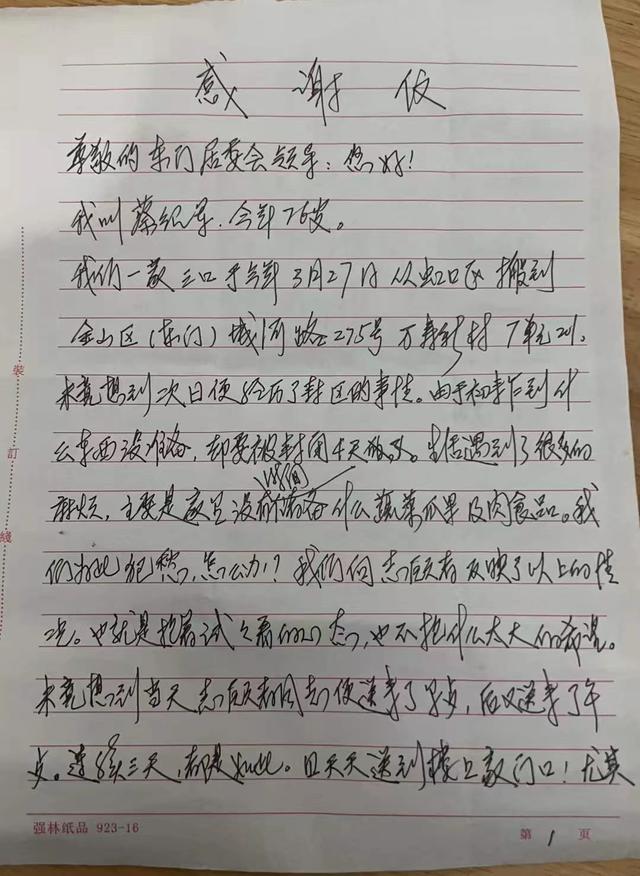 感谢信
尊敬的东门居委会领导：您好！
我叫蔡纪军，今年76岁。
我们一家三口于今年3月27日从虹口区搬到
金山区（东门）城河路275号万寿新村7单元211。
未竟想到次日便经历了封区的事情。由于初来乍到什
么东西没准备，却要被封闭4天做核。生活遇到了很多的
麻烦，主要是家里没储备什么蔬菜瓜果及肉食品。我
们为此犯愁，怎么办！？我们向志愿者反映了以上的情
况。也就是抱着试试看的心态，也不抱什么太大的希望。
未竟想到当天志愿者同志便送来了早点，后又送来了午
点。连续三天，都是如此。且天天送到楼上家门口！尤其
装
订
线
强林纸品 923-16
第 1 页